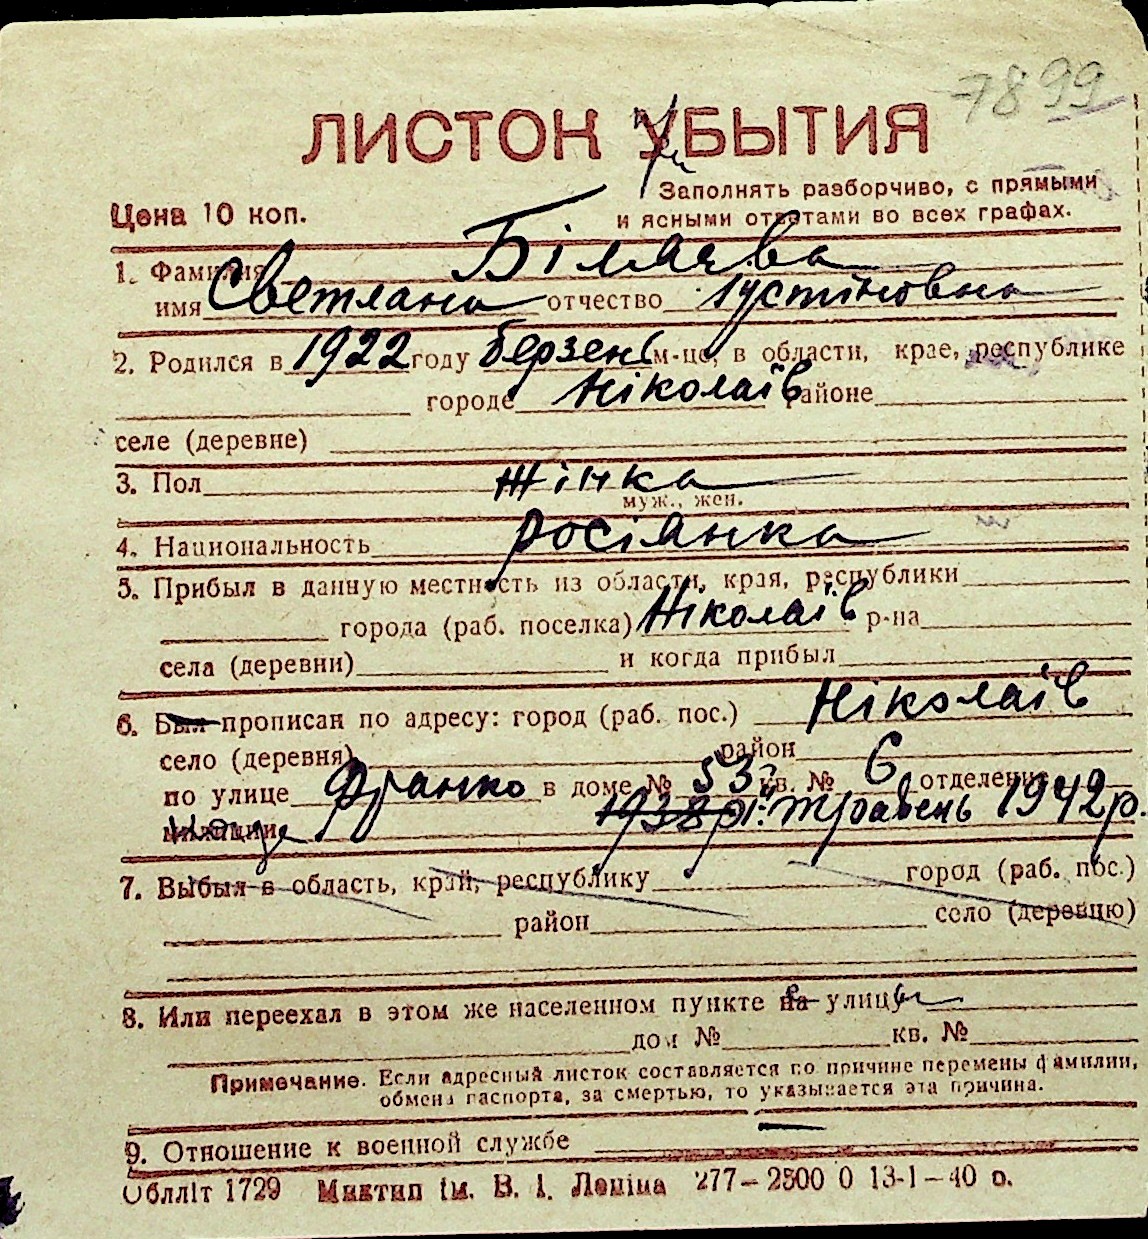 7899
ЛИСТОК УБЫТИЯ
При
Заполнять разборчиво, с прямыми
Цена 10 коп. и ясными ответами во всех графах.
1. Фамилия Біляєва
имя Светлана отчество Іустіновна
2. Родился в 1922 году берзень м-це, в области, крае, республике
городе Ніколаїв районе
селе (деревне)
3. Пол жінка
муж., жен.
4. Национальность росіянка
5. Прибыл в данную местность из области, края, республики
города (раб. поселка) Ніколаїв р-на
села (деревни) и когда прибыл
6. Был прописан по адресу: город (раб. пос.) Ніколаїв
село (деревня) район
по улице Франко в доме № 53 кв. № 6 отделение
милиции 1938 р. травень 1942 р.
7. Выбыл в область, край, республику город (раб. пос.)
район село (деревцю)
8. Или переехал в этом же населенном пункте на улицу
дом № кв. №
Примечание. Если адресный листок составляется по причине перемены фамилии,
обмена паспорта, за смертью, то указывается эта причина.
9. Отношение к военной службе
Облліт 1729 Миктип ім. В. І. Леніна 277–2500 0 13-1–40 р.